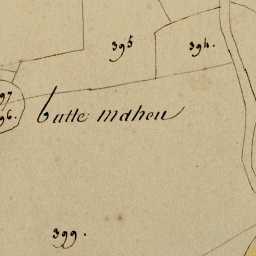 395
394.
97
96.
butte maheu
399.